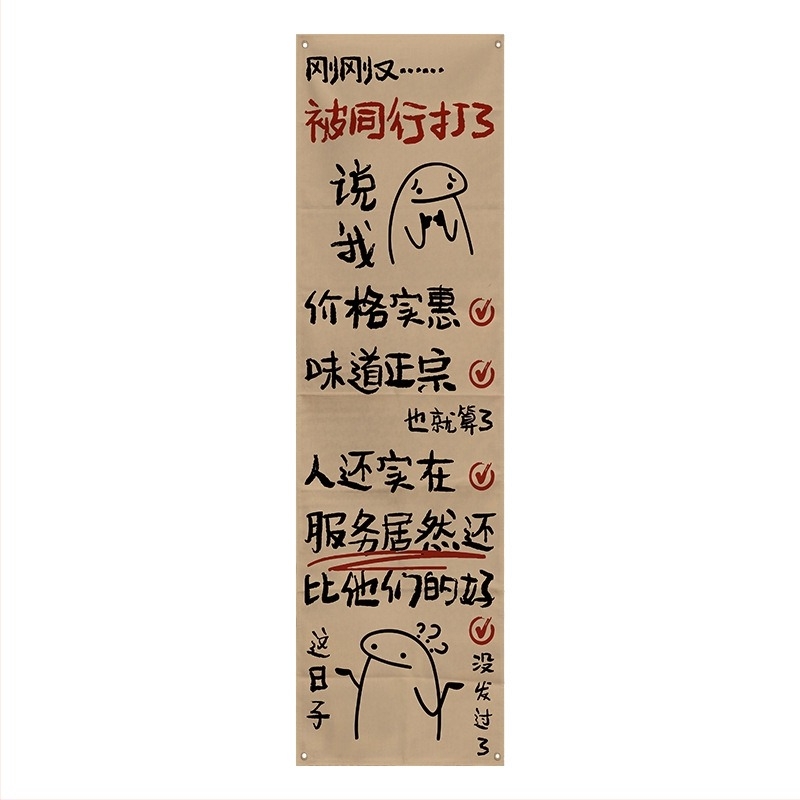 刚刚又……
被同行打了
说我
价格实惠
味道正宗
也就算了
人还实在
服务居然还
比他们的好
这日子
??
没发过了